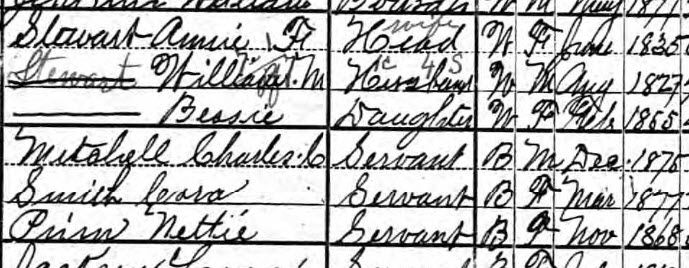 Boarder W M May 1877
wife
Stewart Annie F Head W F June 1835
Stewart William M Husband W M Aug 1827
c 4 S
—— Bessie Daughter W F Feb 1865
Mitchell Charles C Servant B M Dec 1875
Smith Cora Servant B F Mar 1877
Prim Nettie Servant B F Nov 1868